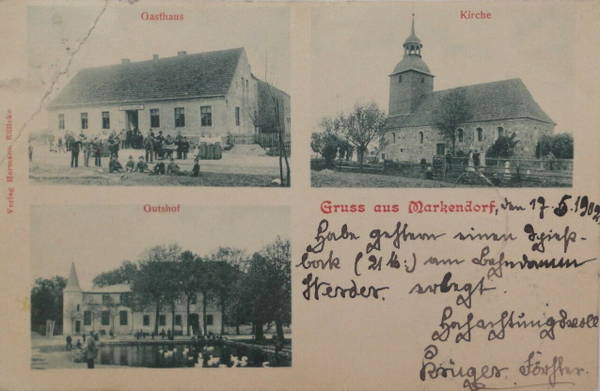 Gasthaus
Kirche
Verlag Hermann
Gutshof
Gruss aus Markendorf, den 17.5.1902
Habe gestern einen Spieß-
bock (21 ℔:) am Bahndamm
Werder. erlegt.
Hochachtungsvoll
Krüger. Förster.